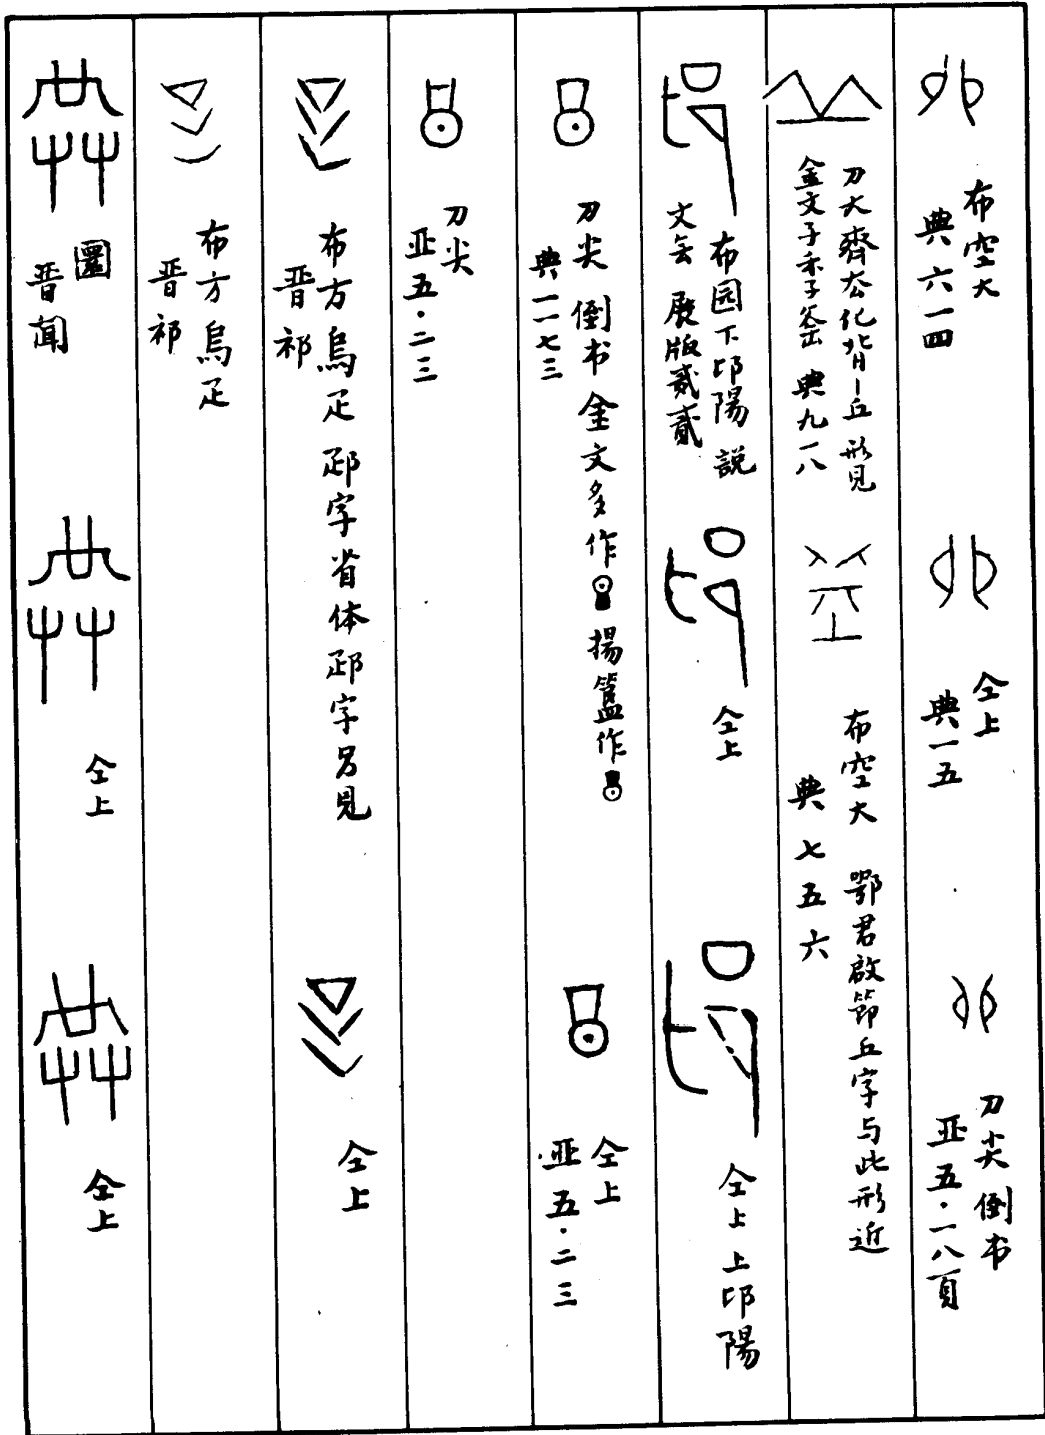 布空大
典六一四
仝上
典一五
刀尖 倒书
亚五·一八頁
刀大齊厺化背丨丘 形見
金文子禾子釜 典九一八
布空大 鄂君啟節丘字与此形近
典七五六
布园下邙陽 説
文 展版貳貳
仝上
仝上 上邙陽
刀尖 倒书 金文多作 揚簋作
典一一七三
仝上
亚五·二三
刀尖
亚五·二三
布方烏疋 字省体 字另見
晋祁
仝上
布方烏疋
晋祁
圜
晋闻
仝上
仝上